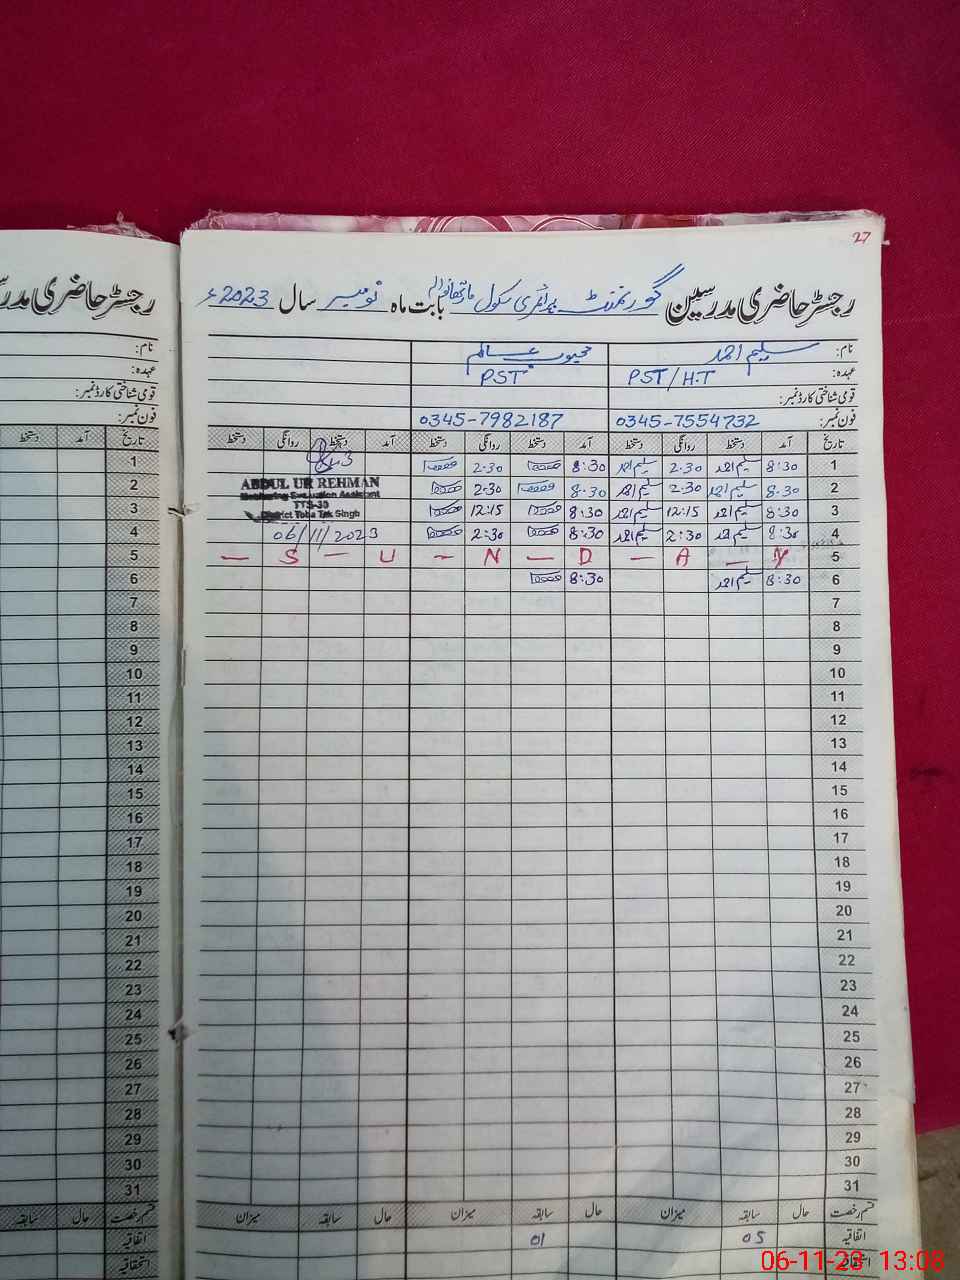 27
رجسٹر حاضری مدرسین گورنمنٹ پرائمری سکول بابت ماہ نومبر سال 2023ء
نام: سلیم احمد محبوب عالم
عہدہ: PST/H.T PST
قومی شناختی کارڈ نمبر:
فون نمبر: 0345-7554732 0345-7982187
تاریخ آمد دستخط روانگی دستخط آمد دستخط روانگی دستخط آمد دستخط روانگی دستخط
1 8:30 سلیم احمد 2:30 سلیم احمد 8:30 2:30
2 8:30 سلیم احمد 2:30 سلیم احمد 8:30 2:30
3 8:30 سلیم احمد 12:15 سلیم احمد 8:30 12:15
4 8:30 سلیم احمد 2:30 سلیم احمد 8:30 2:30
ABDUL UR REHMAN
Monitoring Evaluation Assistant
District Toba Tek Singh
06/11/2023
— S — U — N — D — A — Y 5
6 8:30 سلیم احمد 8:30
7
8
9
10
11
12
13
14
15
16
17
18
19
20
21
22
23
24
25
26
27
28
29
30
31
قسم رخصت حال سابقہ میزان حال سابقہ میزان حال سابقہ میزان
اتفاقیہ 05 01
استحقاقیہ
رجسٹر حاضری
نام:
عہدہ:
قومی شناختی کارڈ نمبر:
فون نمبر:
تاریخ آمد دستخط
1
2
3
4
5
6
7
8
9
10
11
12
13
14
15
16
17
18
19
20
21
22
23
24
25
26
27
28
29
30
31
قسم رخصت حال سابقہ
اتفاقیہ
استحقاقیہ
06-11-23 13:08